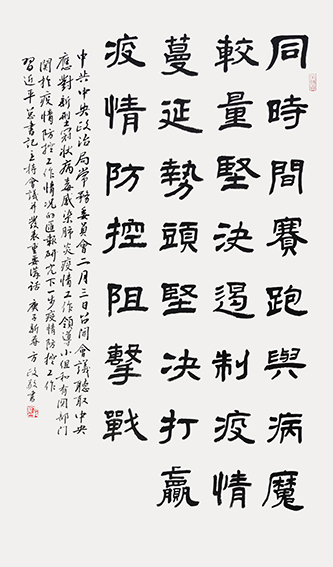 同時間賽跑與病魔
較量堅决遏制疫情
蔓延勢頭堅决打贏
疫情防控阻擊戰
中共中央政治局常務委員會二月三日召開會議聽取中央
應對新型冠狀病毒感染肺炎疫情工作領導小組和有関部门
関於疫情防控工作情况的匯報研究下一步疫情防控工作
習近平总書記主持會議并發表重要講話 庚子新春方政敬書